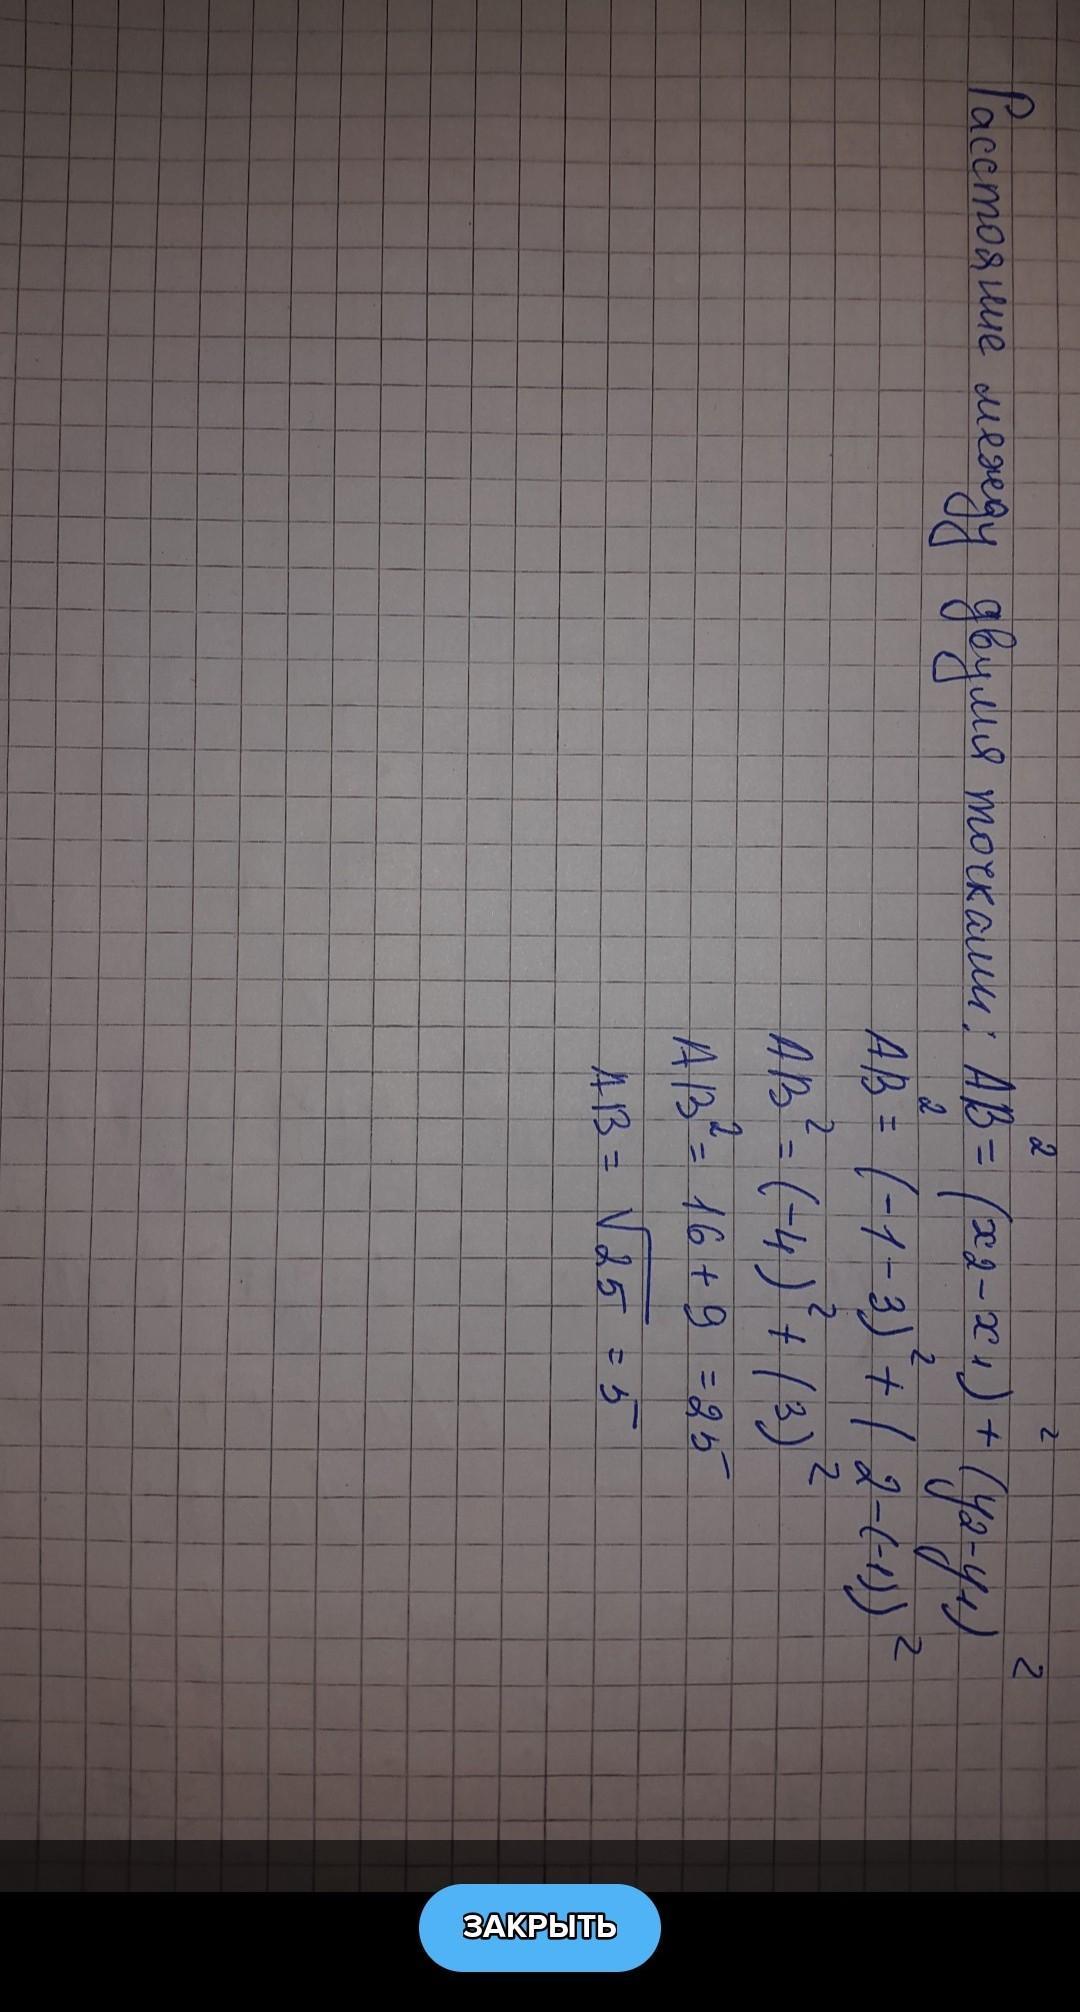 Расстояние между двумя точками: AB² = (x2 - x1)² + (y2 - y1)²
AB² = (-1 - 3)² + (2 - (-1))²
AB² = (-4)² + (3)²
AB² = 16 + 9 = 25
AB = √25 = 5
ЗАКРЫТЬ